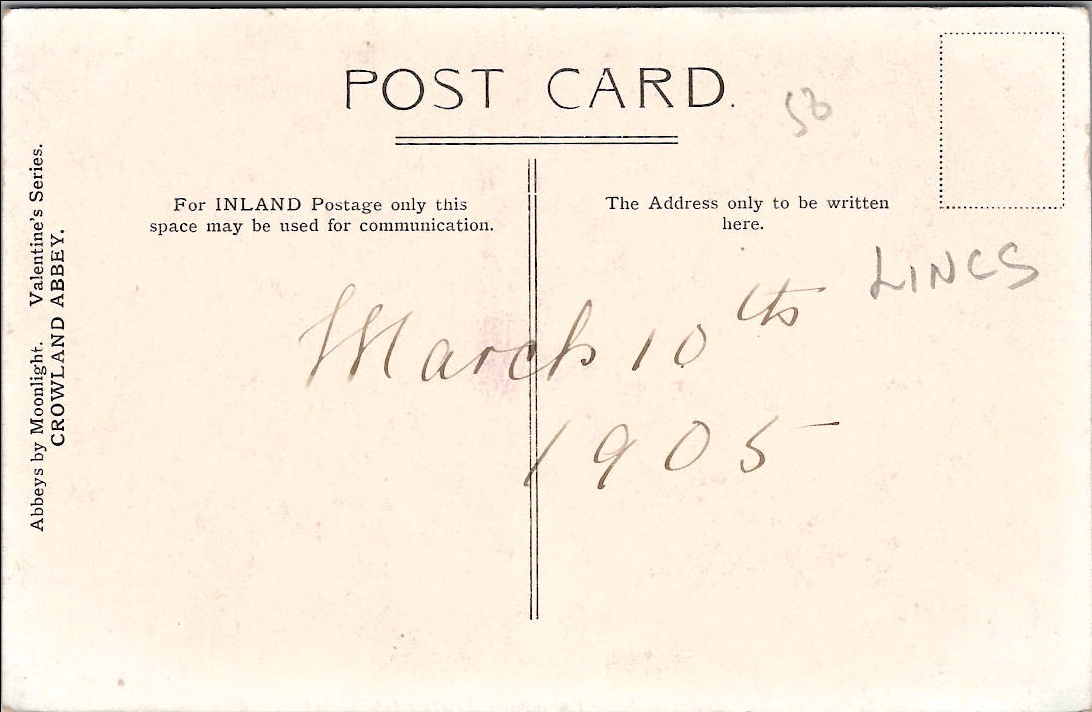 POST CARD.
50p
Abbeys by Moonlight. Valentine's Series.
CROWLAND ABBEY.
For INLAND Postage only this
space may be used for communication.
The Address only to be written
here.
LINCS
March 10th
1905